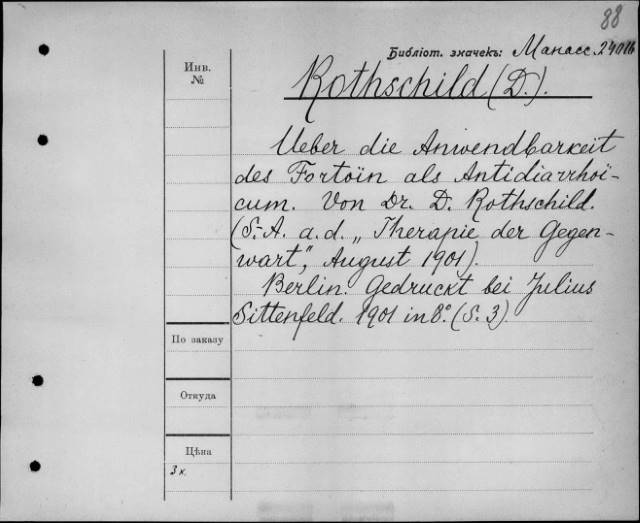 88
Библіот. значекъ: Манасс. 24016
Инв.
№
Rothschild (D.).
Ueber die Anwendbarkeit
des Fortoïn als Antidiarrhoï-
cum. Von Dr. D. Rothschild.
(S.-A. a. d. „Therapie der Gegen-
wart“, August 1901).
Berlin. Gedruckt bei Julius
Sittenfeld. 1901 in 8°. (S. 3).
По заказу
Откуда
Цѣна
3 к.